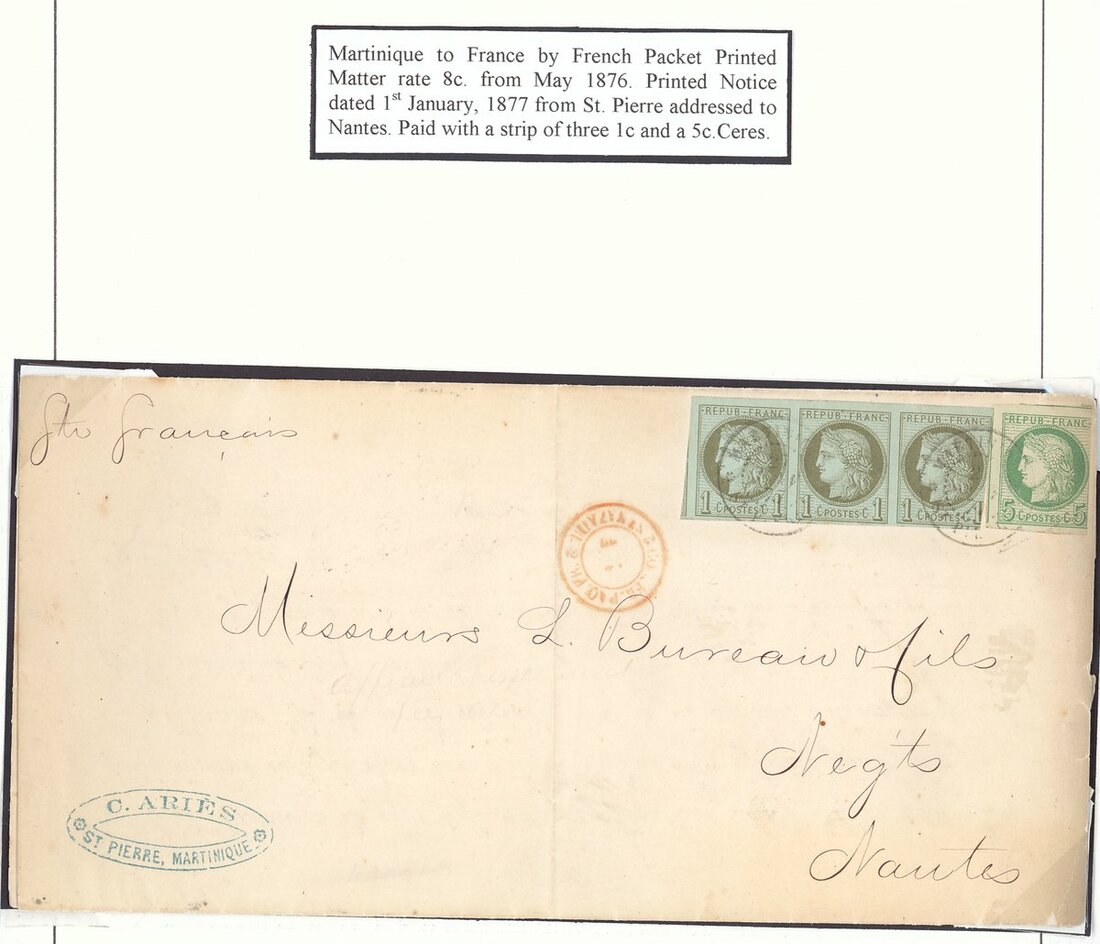 Martinique to France by French Packet Printed
Matter rate 8c. from May 1876. Printed Notice
dated 1st January, 1877 from St. Pierre addressed to
Nantes. Paid with a strip of three 1c and a 5c.Ceres.
Français
REPUB·FRANC REPUB·FRANC REPUB·FRANC REPUB·FRANC
1 C POSTES C 1 1 C POSTES C 1 1 C POSTES C 1 5 C POSTES C 5
Messieurs L. Bureau & fils
Negts
Nantes
C. ARIÈS
ST PIERRE, MARTINIQUE